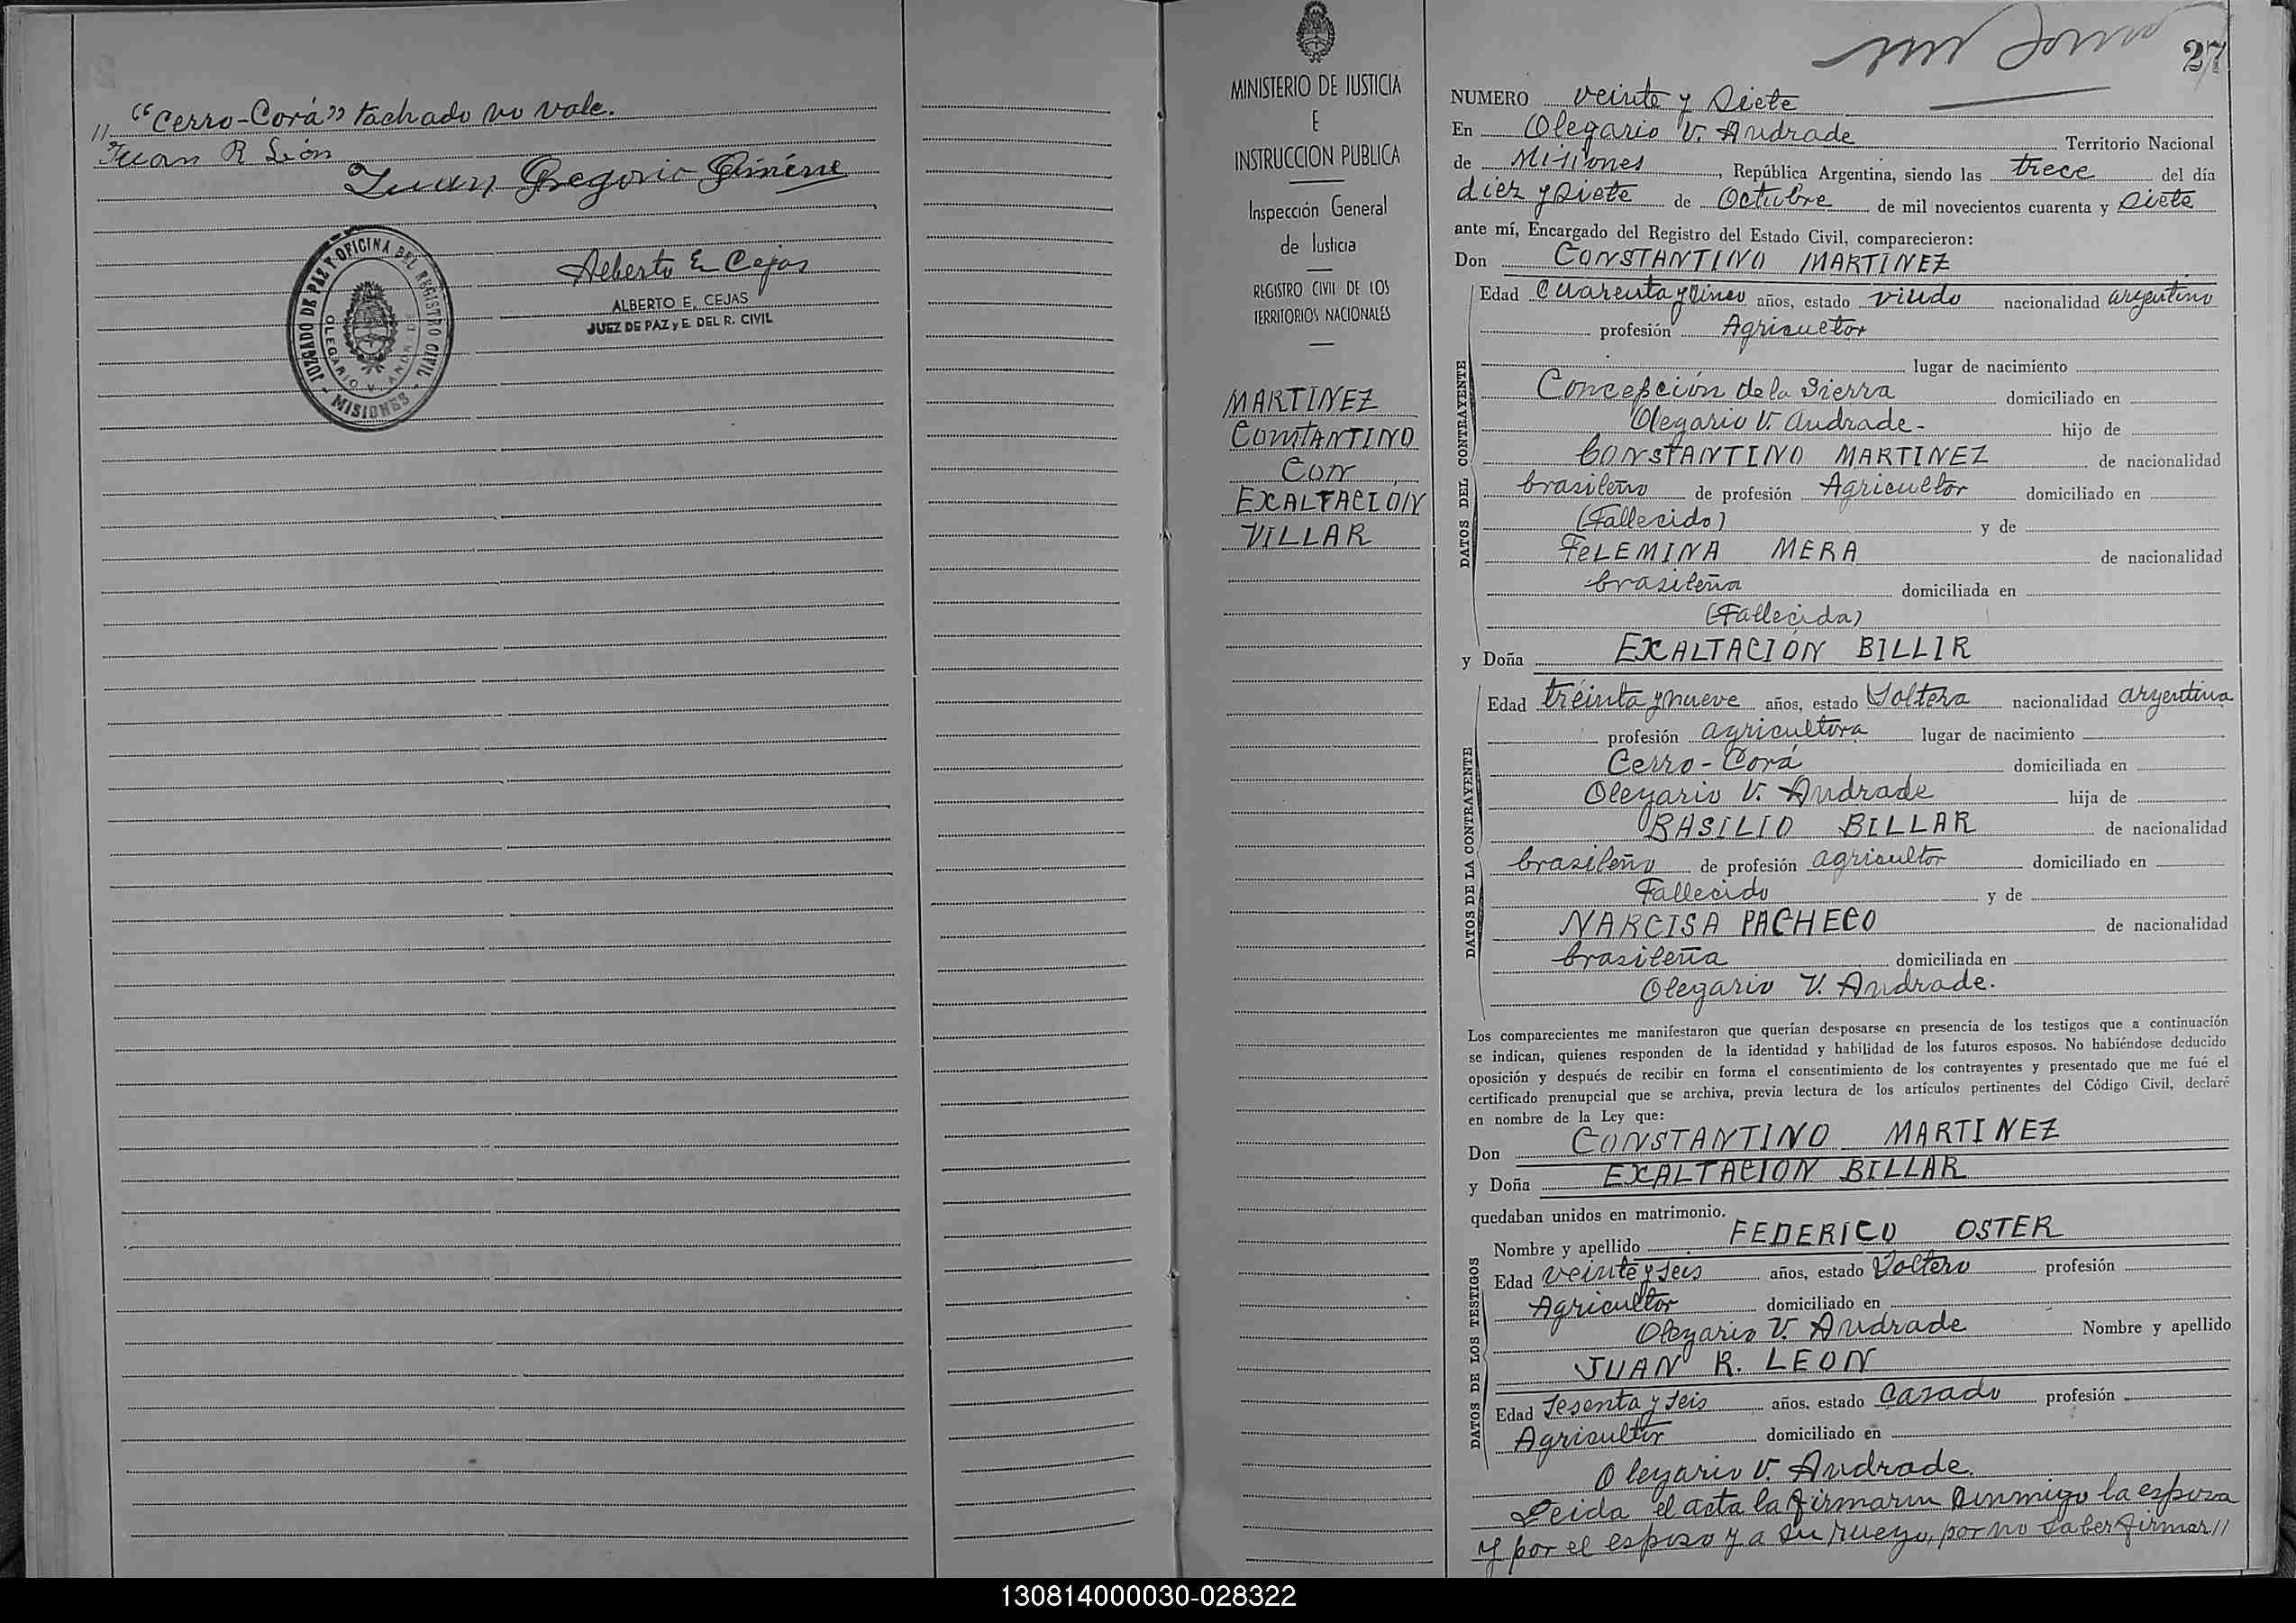 "Cerro-Corá" tachado no vale.
Juan R León
Juan Gregorio
Alberto E Cejas
ALBERTO E. CEJAS
JUEZ DE PAZ y E. DEL R. CIVIL
JUZGADO DE PAZ Y OFICINA DEL REGISTRO CIVIL
OLEGARIO V. ANDRADE
MISIONES
MINISTERIO DE JUSTICIA
E
INSTRUCCION PUBLICA
Inspección General
de Justicia
REGISTRO CIVIL DE LOS
TERRITORIOS NACIONALES
MARTINEZ
CONSTANTINO
CON
EXALTACIÓN
VILLAR
27
NUMERO veinte y siete
En Olegario V. Andrade Territorio Nacional
de Misiones, República Argentina, siendo las trece del día
diez y siete de Octubre de mil novecientos cuarenta y siete
ante mí, Encargado del Registro del Estado Civil, comparecieron:
Don CONSTANTINO MARTINEZ
DATOS DEL CONTRAYENTE
Edad cuarenta y cinco años, estado viudo nacionalidad argentino
profesión Agricultor
lugar de nacimiento
Concepción de la Sierra domiciliado en
Olegario V. Andrade- hijo de
CONSTANTINO MARTINEZ de nacionalidad
brasileño de profesión Agricultor domiciliado en
(Fallecido) y de
FELEMINA MERA de nacionalidad
brasileña domiciliada en
(Fallecida)
y Doña EXALTACIÓN BILLIR
DATOS DE LA CONTRAYENTE
Edad treinta y nueve años, estado Soltera nacionalidad argentina
profesión agricultora lugar de nacimiento
Cerro-Corá domiciliada en
Olegario V. Andrade hija de
BASILIO BILLAR de nacionalidad
brasileño de profesión agricultor domiciliado en
Fallecido y de
NARCISA PACHECO de nacionalidad
brasileña domiciliada en
Olegario V. Andrade.
Los comparecientes me manifestaron que querían desposarse en presencia de los testigos que a continuación
se indican, quienes responden de la identidad y habilidad de los futuros esposos. No habiéndose deducido
oposición y después de recibir en forma el consentimiento de los contrayentes y presentado que me fué el
certificado prenupcial que se archiva, previa lectura de los artículos pertinentes del Código Civil, declaré
en nombre de la Ley que:
Don CONSTANTINO MARTINEZ
y Doña EXALTACION BILLAR
quedaban unidos en matrimonio.
DATOS DE LOS TESTIGOS
Nombre y apellido FEDERICO OSTER
Edad veinte y seis años, estado Soltero profesión
Agricultor domiciliado en
Olegario V. Andrade Nombre y apellido
JUAN R. LEON
Edad Sesenta y seis años, estado Casado profesión
Agricultor domiciliado en
Olegario V. Andrade.
Leida el acta la firmaron conmigo la esposa
y por el esposo y a su ruego, por no saber firmar//
130814000030-028322